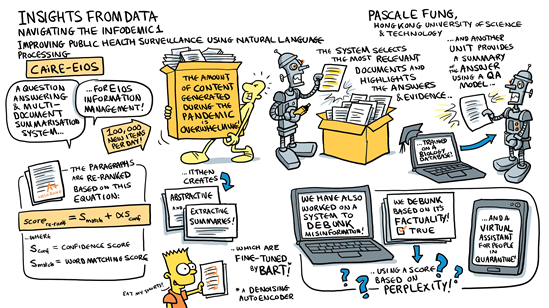 INSIGHTS FROM DATA
NAVIGATING THE INFODEMIC 1
IMPROVING PUBLIC HEALTH SURVEILLANCE USING NATURAL LANGUAGE
PROCESSING
PASCALE FUNG,
HONG KONG UNIVERSITY OF SCIENCE
& TECHNOLOGY
CAiRE-EIOS
A QUESTION
ANSWERING
& MULTI-
DOCUMENT
SUMMARISATION
SYSTEM...
...FOR EIOS
INFORMATION
MANAGEMENT!
100,000
NEW ITEMS
PER DAY!
THE AMOUNT
OF CONTENT
GENERATED
DURING THE
PANDEMIC IS
OVERWHELMING
THE SYSTEM SELECTS
THE MOST RELEVANT
DOCUMENTS AND
HIGHLIGHTS
THE ANSWERS
& EVIDENCE...
...AND ANOTHER
UNIT PROVIDES
A SUMMARY
OF THE
ANSWER
USING A QA
MODEL...
...TRAINED
ON A
BIOLOGY
DATABASE!
THE PARAGRAPHS
ARE RE-RANKED
BASED ON THIS
EQUATION:
score re-rank = Smatch + αSconf
...WHERE
Sconf = CONFIDENCE SCORE
Smatch = WORD MATCHING SCORE
...IT THEN
CREATES
ABSTRACTIVE
AND
EXTRACTIVE
SUMMARIES!
...WHICH ARE
FINE-TUNED
BY BART!
EAT MY SHORTS!
* A DENOISING
AUTOENCODER
WE HAVE ALSO
WORKED ON A
SYSTEM TO
DEBUNK
MISINFORMATION!
WE DEBUNK
BASED ON ITS
FACTUALITY!
TRUE
...USING A SCORE
BASED ON
PERPLEXITY!
...AND A
VIRTUAL
ASSISTANT
FOR PEOPLE
IN
QUARANTINE!